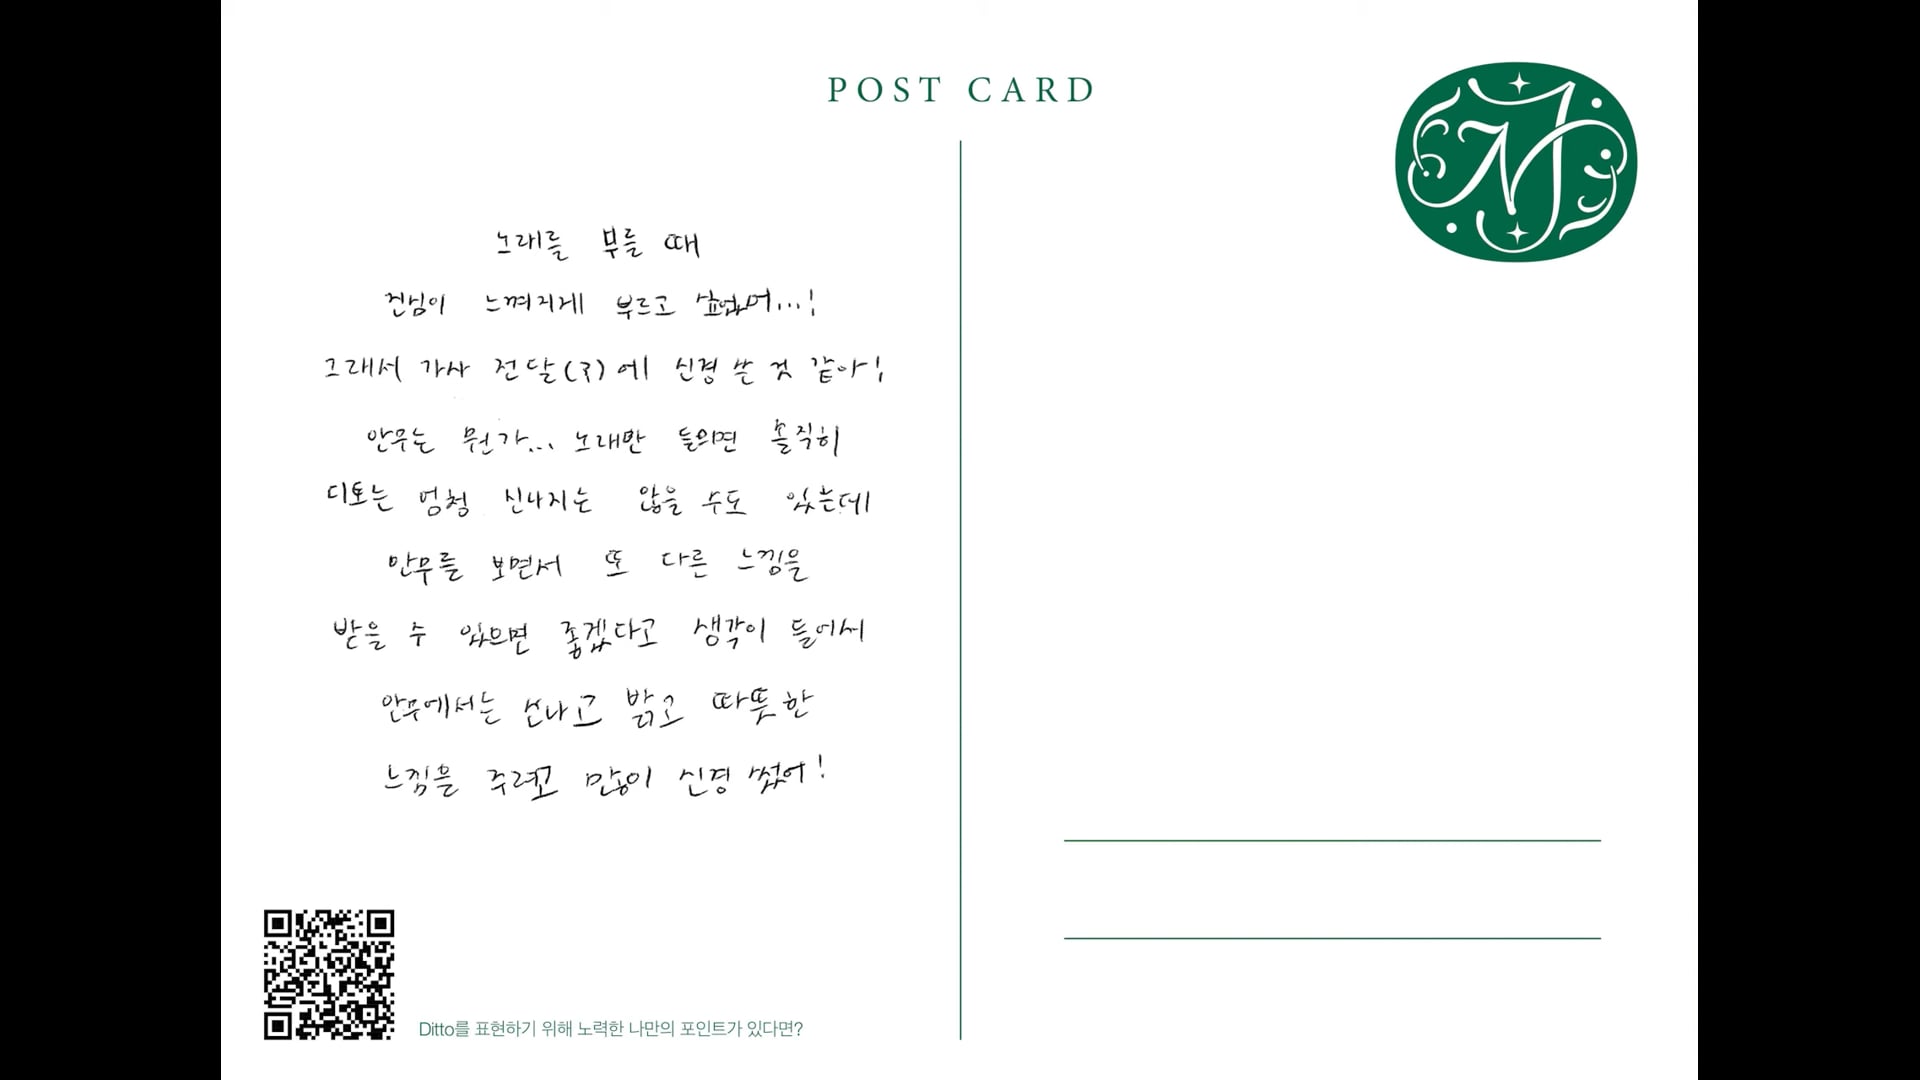 POST CARD
노래를 부를 때
진심이 느껴지게 부르고 싶었어...!
그래서 가사 전달(?)에 신경 쓴 것 같아!
안무는 뭔가... 노래만 들으면 솔직히
디토는 엄청 신나지는 않을 수도 있는데
안무를 보면서 또 다른 느낌을
받을 수 있으면 좋겠다고 생각이 들어서
안무에서는 신나고 밝고 따뜻한
느낌을 주려고 많이 신경 썼어!
Ditto를 표현하기 위해 노력한 나만의 포인트가 있다면?